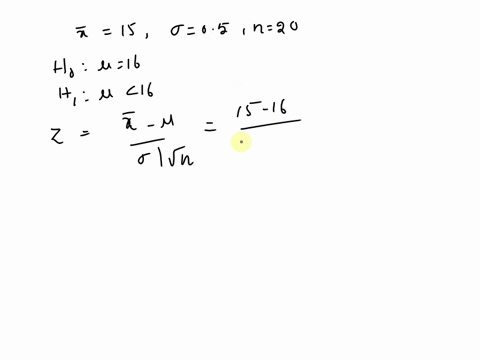 x̄ = 15, σ = 0.5, n = 20
H₀: μ = 16
H₁: μ < 16
z = x̄ - μ / σ|√n = 15 - 16 /